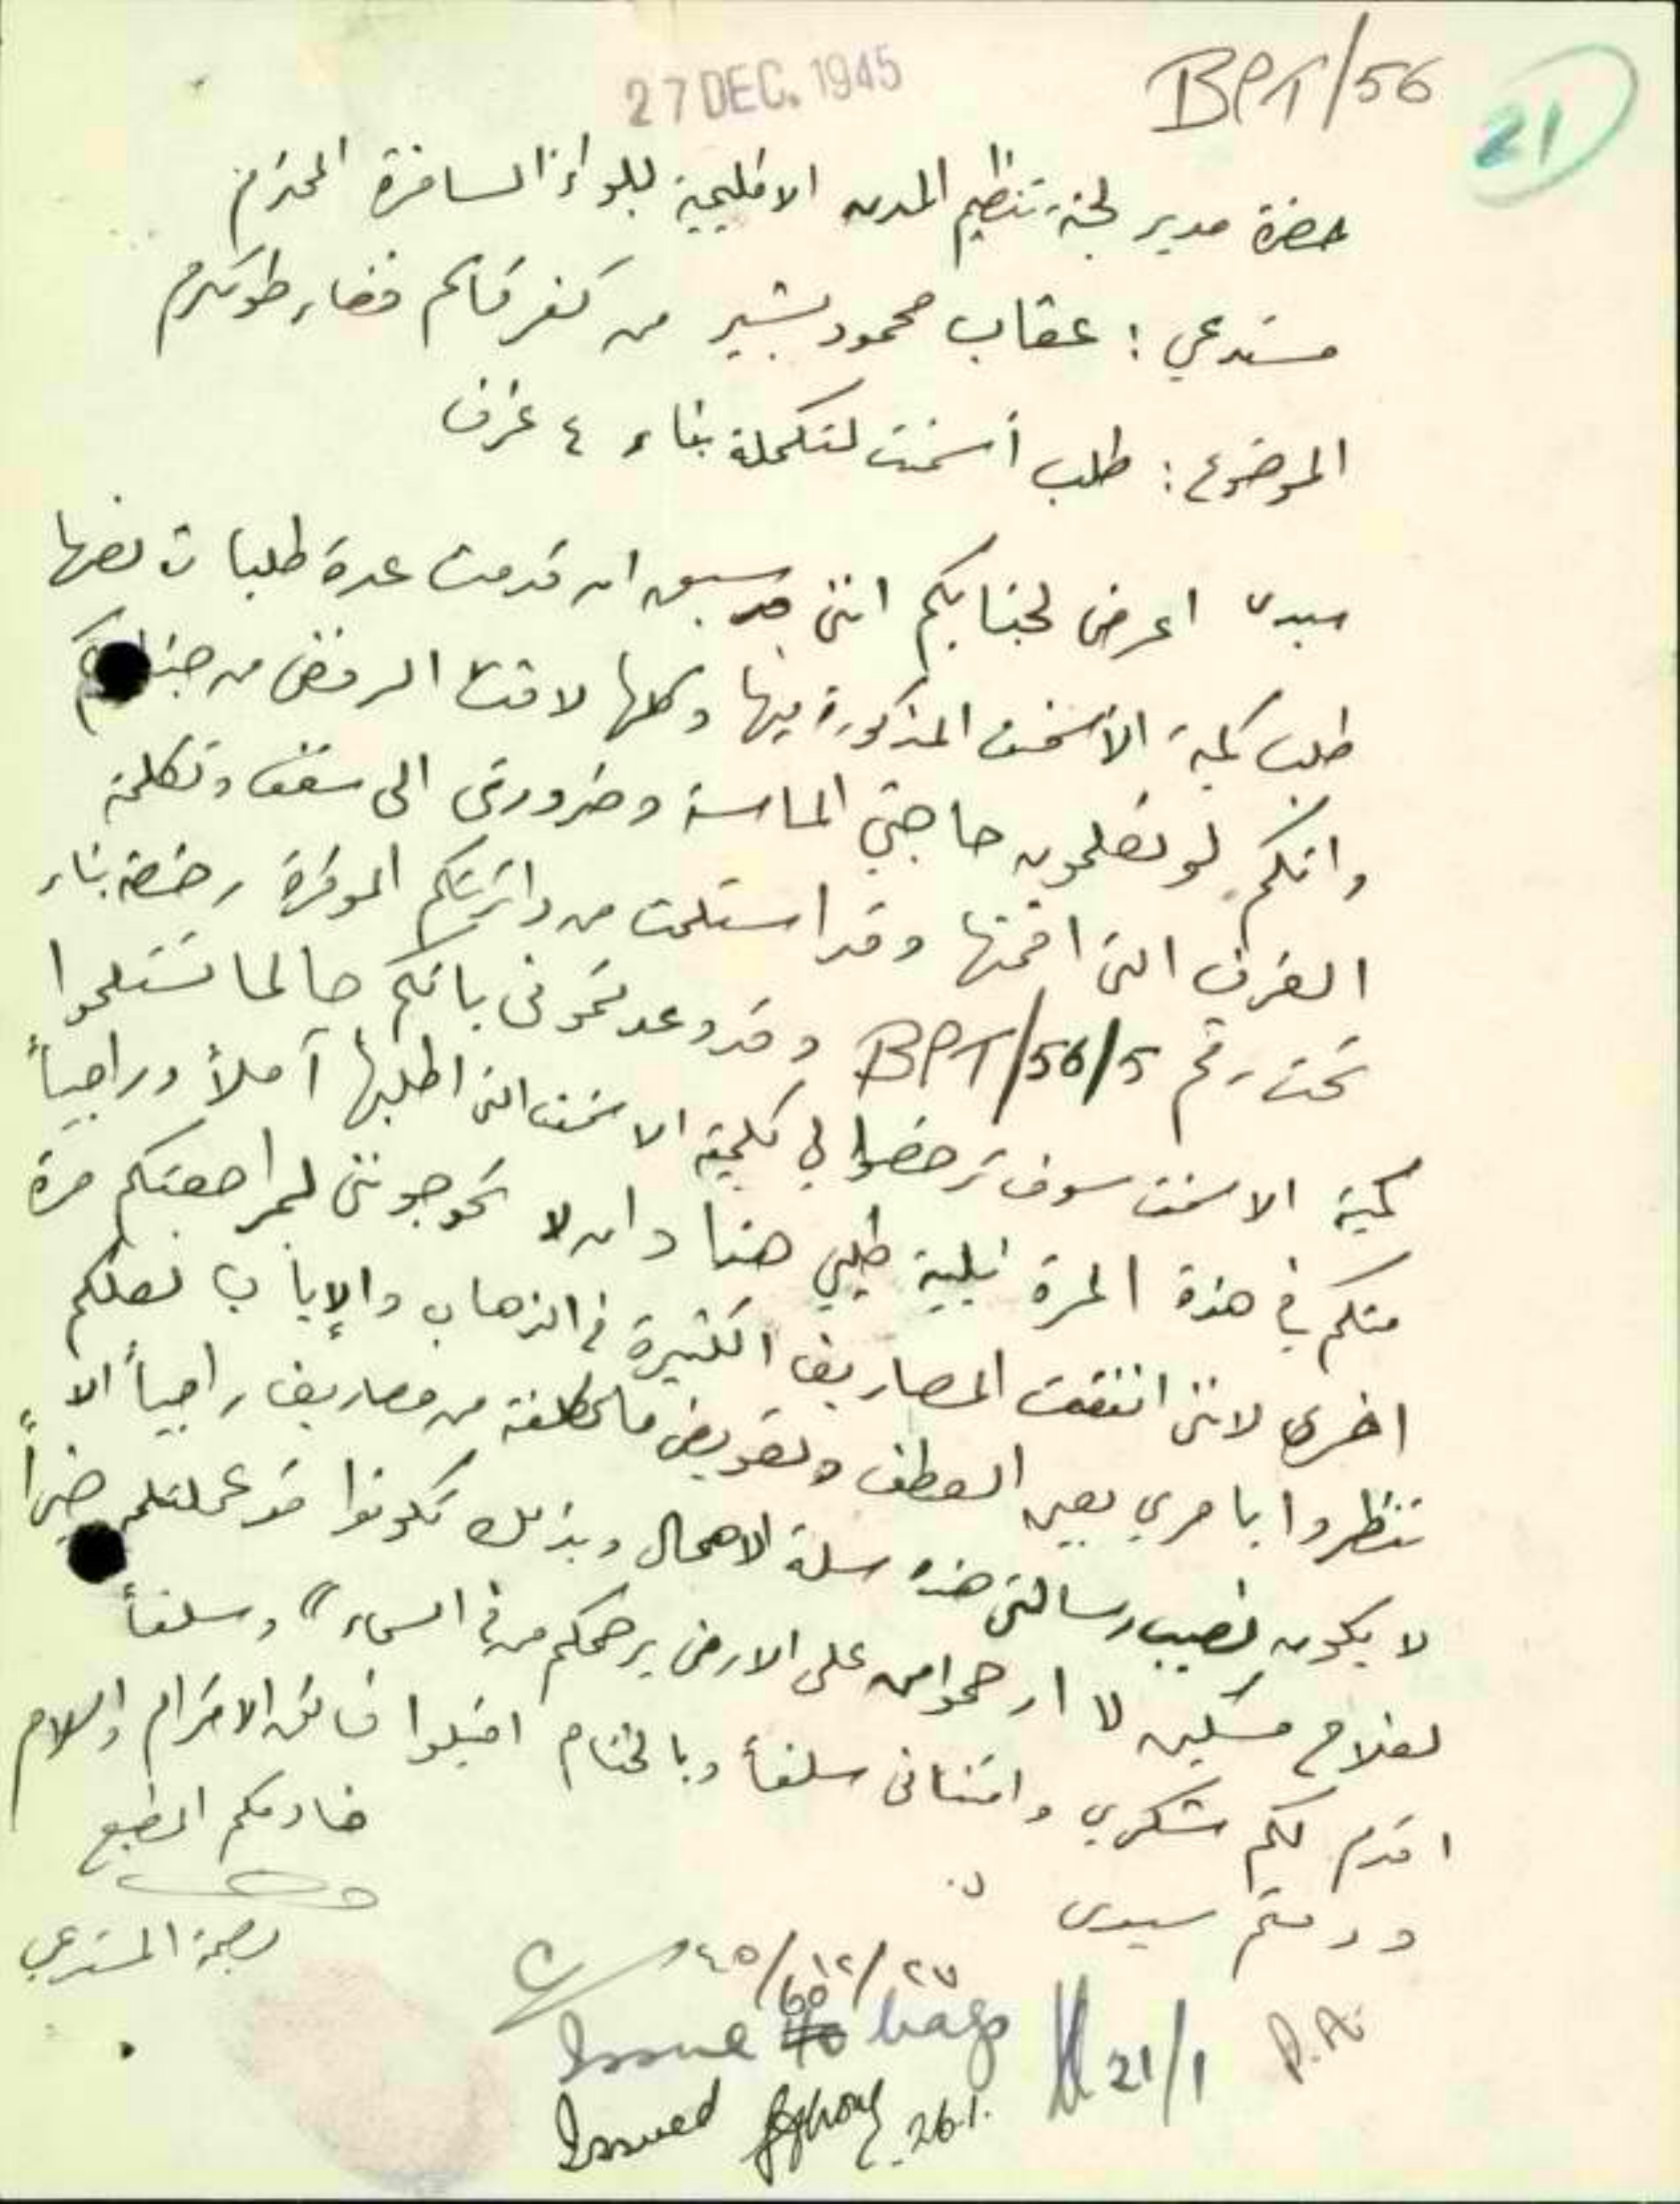 27 DEC. 1945
BPT/56
21
حضرة مدير لجنة تنظيم المدن الاقليمية للواء السامرة المحترم
مستدعي : عقاب محمود بشير من كفر قاسم قضاء طولكرم
الموضوع : طلب أسمنت لتكملة بناء ٤ غرف
سيدي اعرض لجنابكم انني قد سبق ان قدمت عدة طلبات بصها
طلب كمية الأسمنت المذكورة فيها وكلها لاقت الرفض من جنابكم
وانكم لو تعلمون حاجتي الماسة وضرورتي الى سقف وتكملة
الغرف التي اقمتها وقد استلمت من دائرتكم الموقرة رخصة بناء
تحت رقم BPT/56/5 وقد وعدتموني بانكم حالما تستلموا
كمية الاسمنت سوف ترخصوا لي بكمية الاسمنت التي اطلبها آملاً وراجياً
منكم في هذه المرة تلبية طلبي هذا وان لا تحوجونني لمراجعتكم مرة
اخرى لانني انفقت المصاريف الكثيرة في الذهاب والإياب لعلكم
تنظروا بامري بعين العطف وتعويض ما تكلفته من مصاريف راجياً الا
لا يكون نصيب رسالتي هذه سلة الاهمال وبذلك تكونوا قد عملتم خيراً
لفلاح مسكين لا ارحموا من على الارض يرحمكم من في السماء" وسلفاً
اقدم لكم شكري وامتناني سلفاً وبالختام اقبلوا فائق الاحترام والسلام
ودمتم سيدي
خادمكم المطيع
بصمة المستدعي
٢٧/١٢/٤٥
60
Issue bags 21/1 P.A.
Issued 26.1.